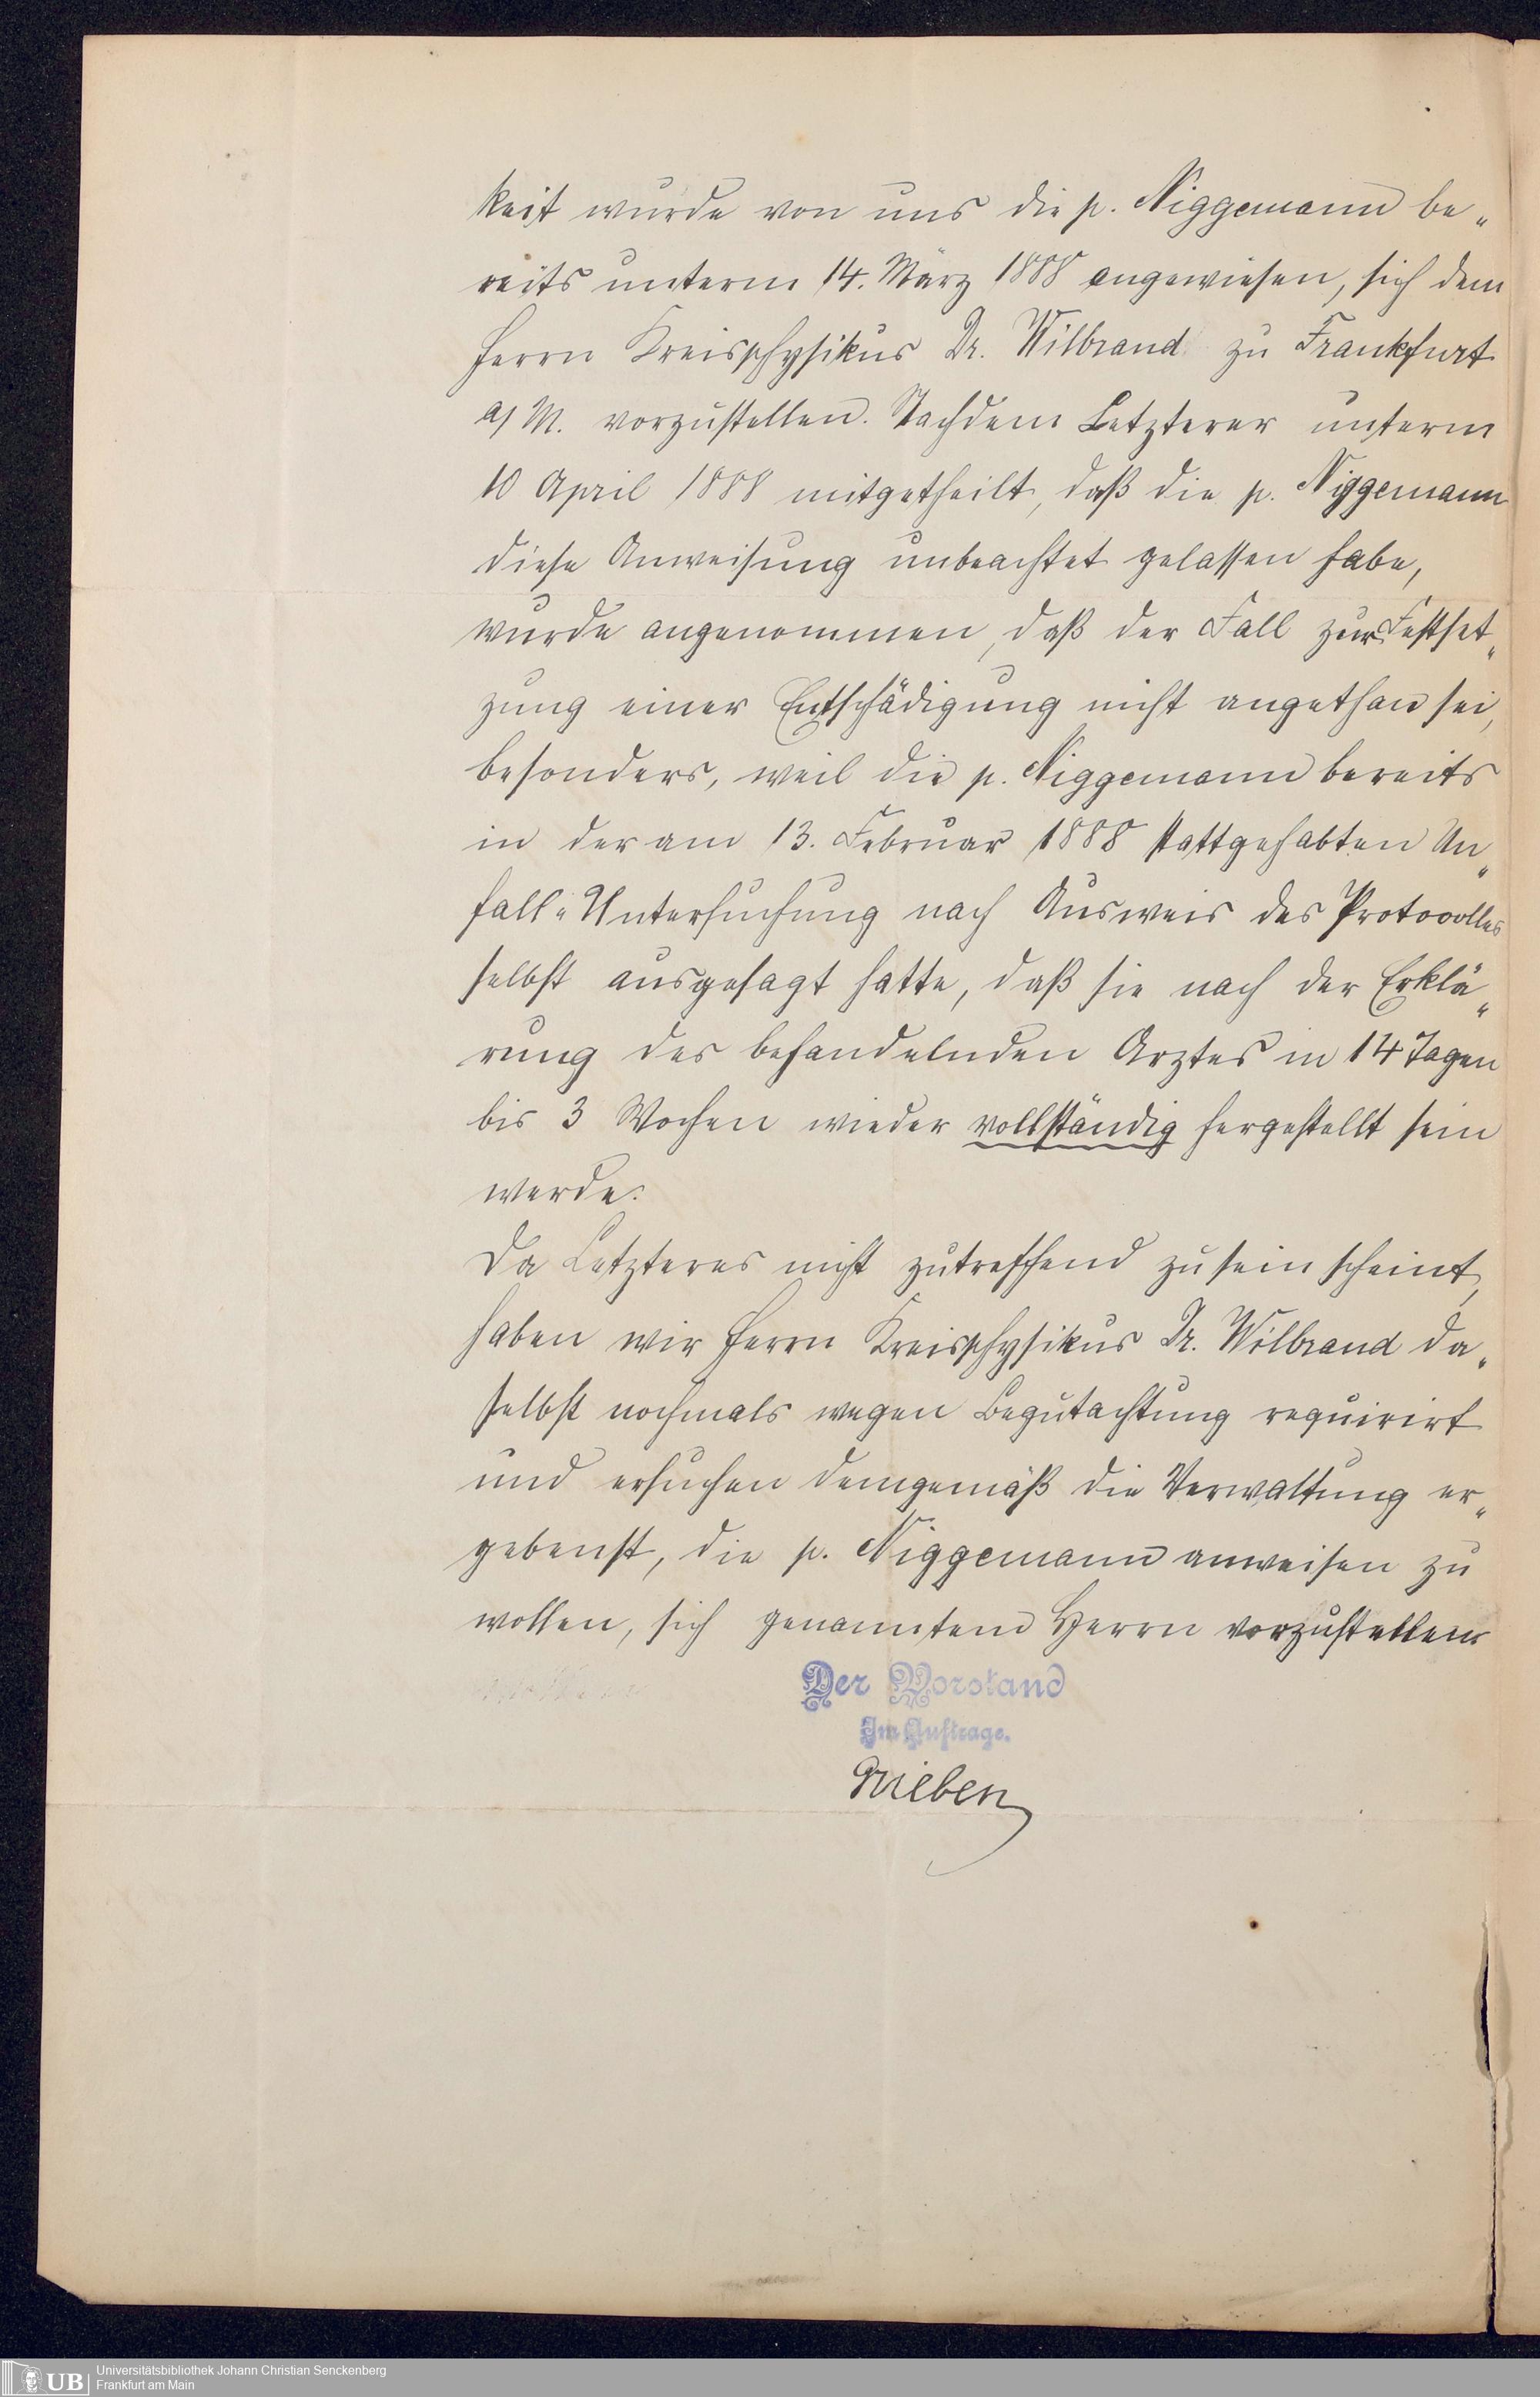 keit wurde von uns die p. Niggemann be„
reits unterm 14. März 1888 angewiesen, sich dem
Herrn Kreisphysikus Dr. Wilbrand zu Frankfurt
a/M. vorzustellen. Nachdem Letzterer unterm
10 April 1888 mitgetheilt, daß die p. Niggemann
diese Anweisung unbeachtet gelassen habe,
wurde angenommen, daß der Fall zur Festset„
zung einer Entschädigung nicht angethan sei,
besonders, weil die p. Niggemann bereits
in der am 13. Februar 1888 stattgehabten Un„
fall„Untersuchung nach Ausweis des Protocolles
selbst ausgesagt hatte, daß sie nach der Erklä„
rung des behandelnden Arztes in 14 Tagen
bis 3 Wochen wieder vollständig hergestellt sein
werde.
Da Letzteres nicht zutreffend zu sein scheint,
haben wir Herrn Kreisphysikus Dr. Wilbrand da„
selbst nochmals wegen Begutachtung requirirt
und ersuchen demgemäß die Verwaltung er„
gebenst, die p. Niggemann anweisen zu
wollen, sich genanntem Herrn vorzustellen
Der Vorstand
Im Auftrage.
Grieben
UB
Universitätsbibliothek Johann Christian Senckenberg
Frankfurt am Main